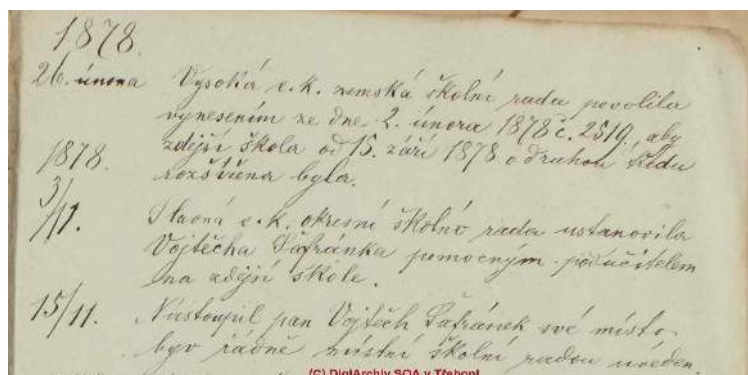 1878.
26. února Vysoká c. k. zemská školní rada povolila
vynesením ze dne 2. února 1878 č. 2519, aby
zdejší škola od 15. září 1878 o druhou třídu
1878. rozšířena byla.
3/11. Slavná c. k. okresní školní rada ustanovila
Vojtěcha Šafránka pomocným podučitelem
na zdejší škole.
15/11. Nastoupil pan Vojtěch Šafránek své místo
byv řádně místní školní radou uveden.
(C) DigiArchiv SOA v Třeboni